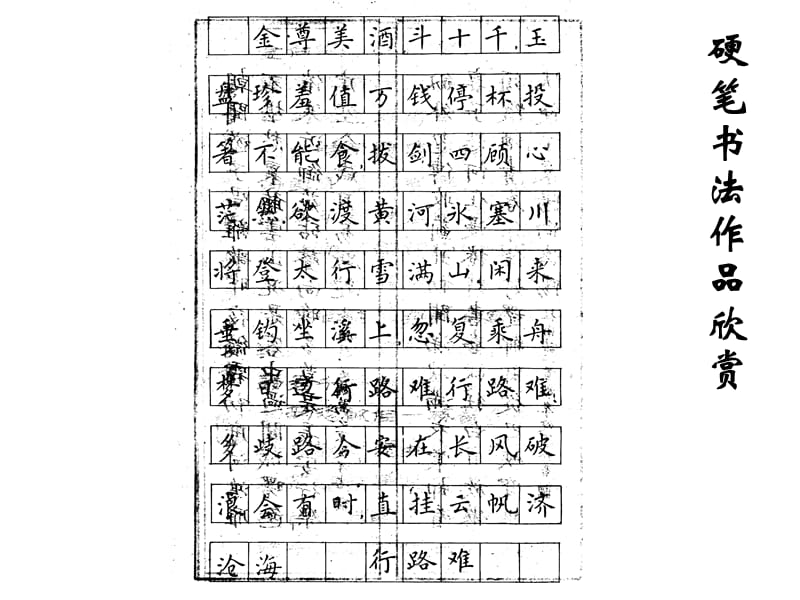 金尊美酒斗十千,玉
盘珍羞值万钱.停杯投
箸不能食,拔剑四顾心
茫然.欲渡黄河氷塞川,
将登太行雪满山.闲来
垂钓坐溪上,忽复乘舟
梦日边.行路难,行路难,
多歧路今安在.长风破
浪会有时,直挂云帆济
沧海
行路难
硬笔书法作品欣赏